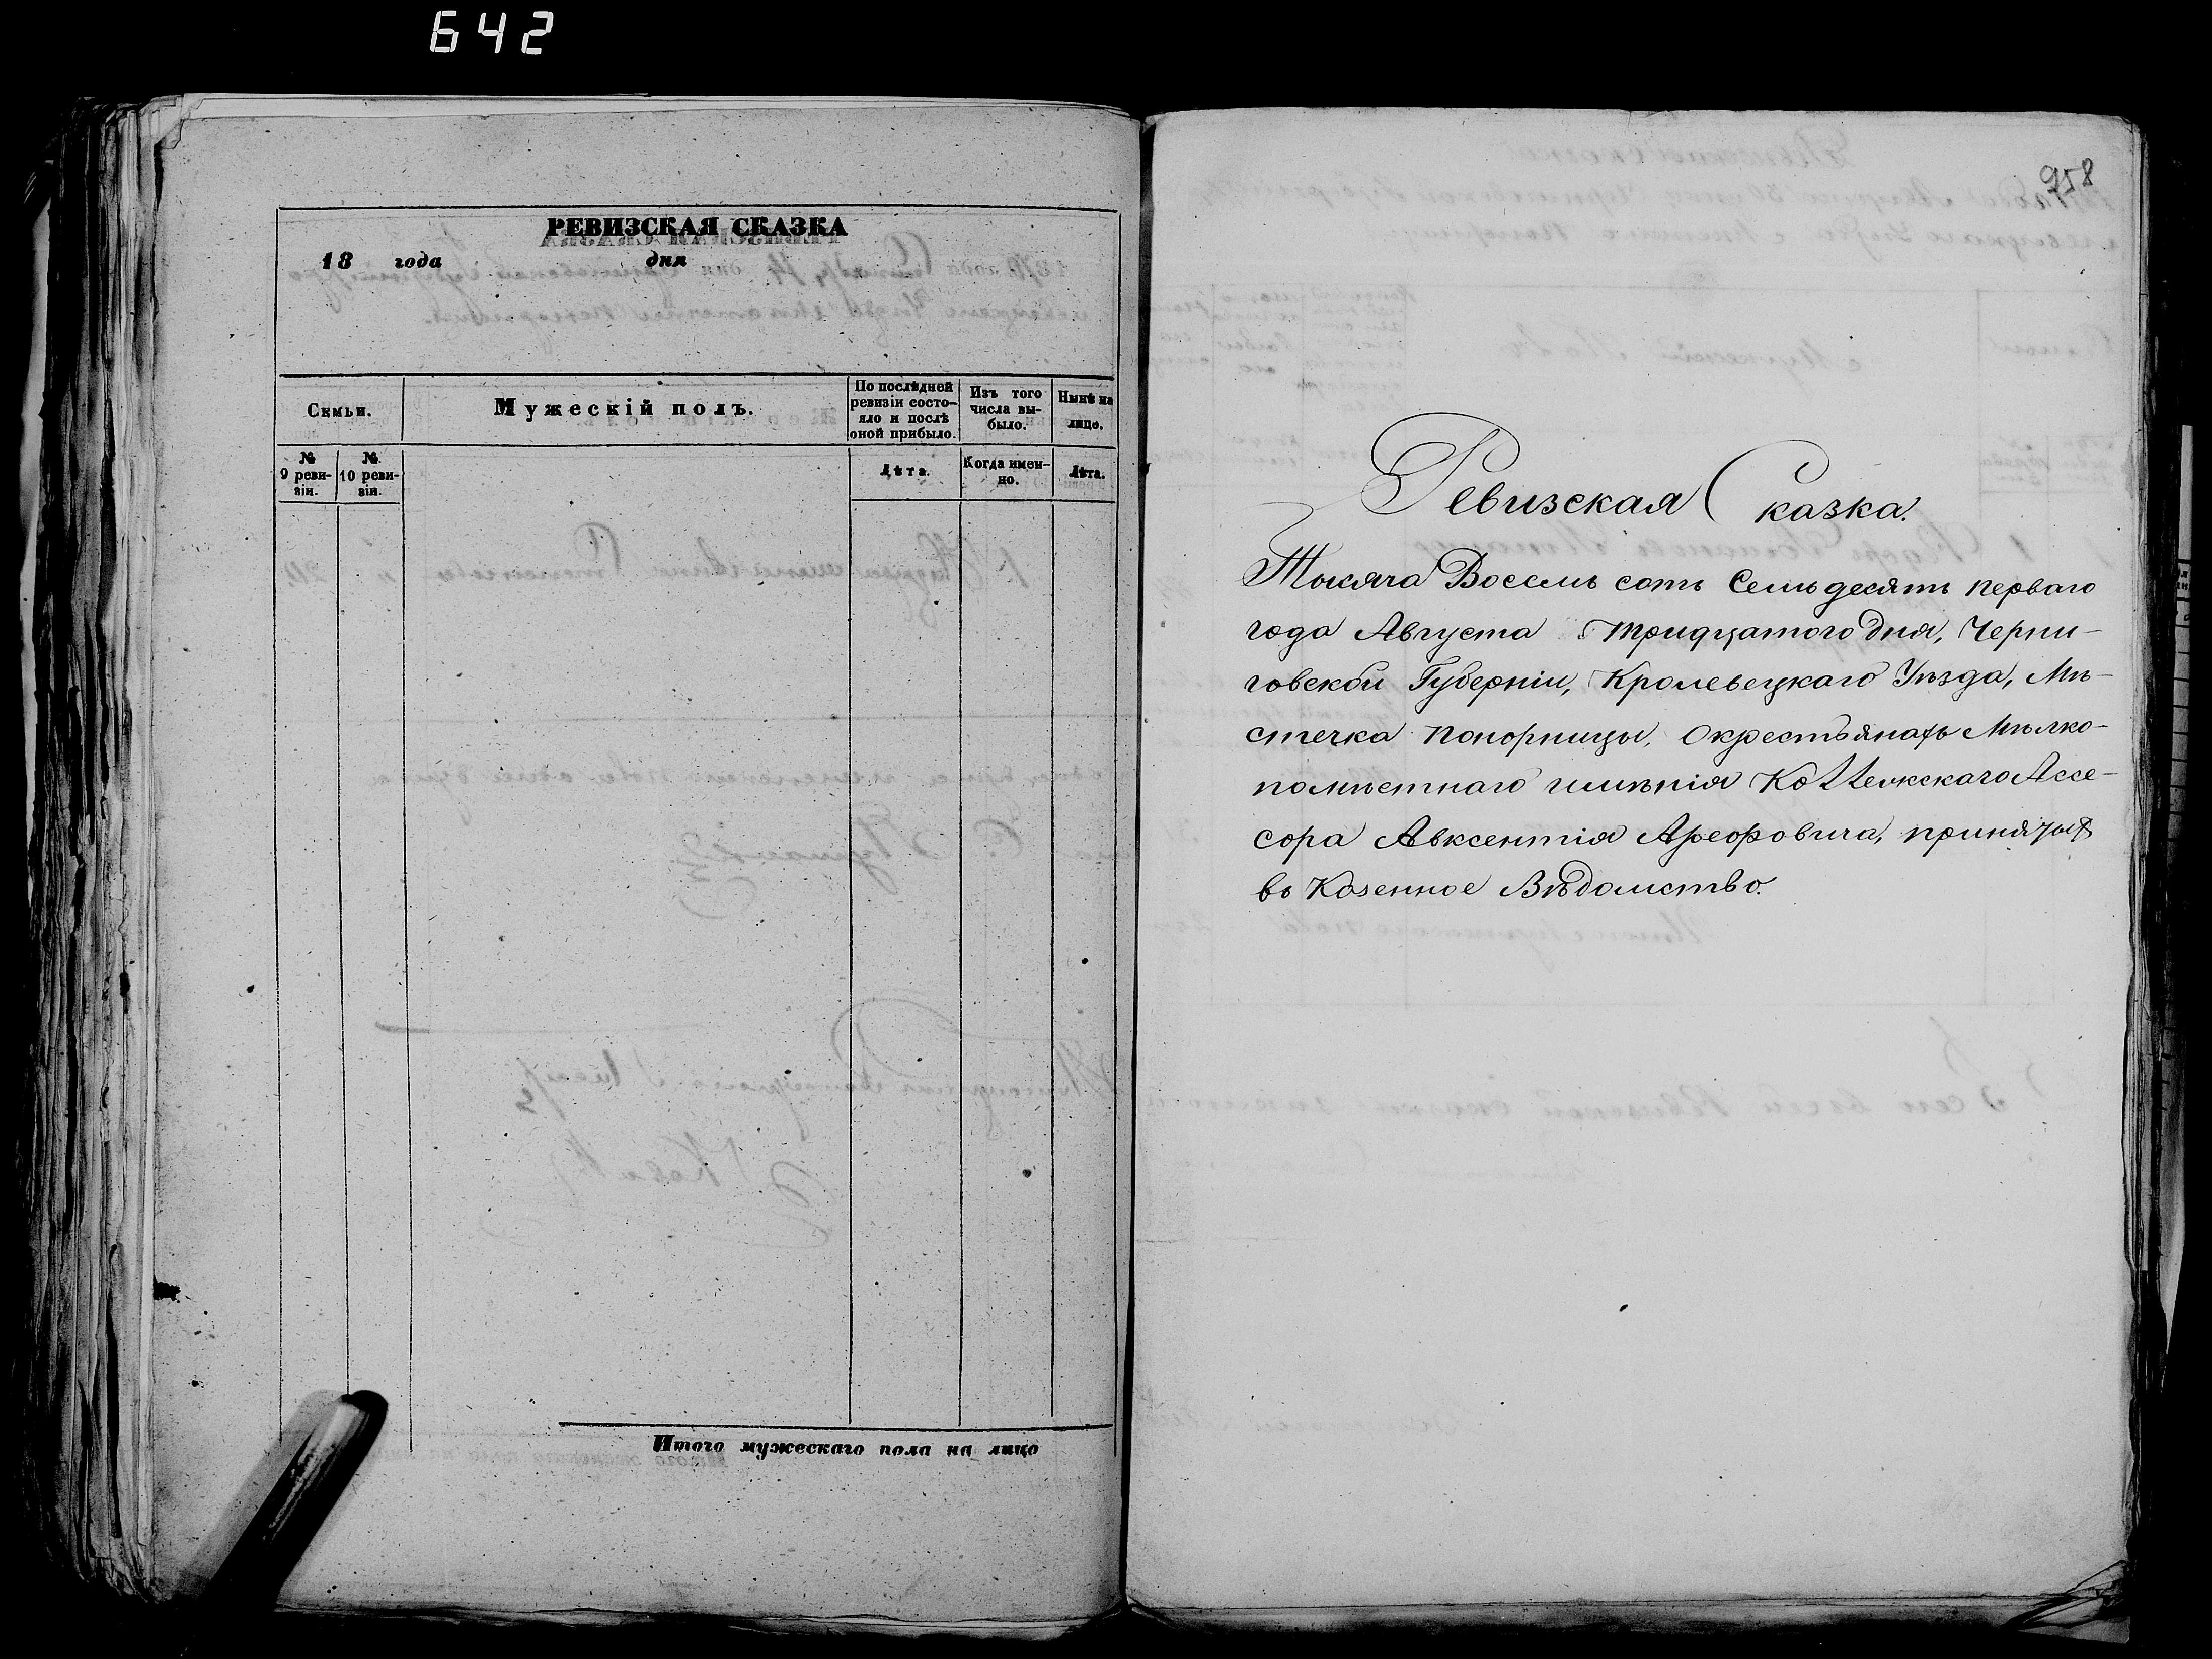 642
РЕВИЗСКАЯ СКАЗКА
18 года дня
Семьи.
Мужескій полъ.
По послѣдней
ревизіи состо-
яло и послѣ
оной прибыло.
Изъ того
числа вы-
было.
Нынѣ на
лицо.
№
9 реви-
зіи.
№
10 реви-
зіи.
Лѣта.
Когда имен-
но.
Лѣта.
Итого мужескаго пола на лицо
958
Ревизская Сказка.
Тысяча Восемь сотъ Семьдесятъ перваго
года Августа Тридцатого дня, Черни-
говской Губерніи, Кролевецкаго Уѣзда, Мѣ-
стечка Понорницы, о крестьянахъ Мѣлко-
помѣстнаго имѣнія Коллежскаго Ассе-
сора Авксентія, принятыхъ
въ Козенное Вѣдомство.